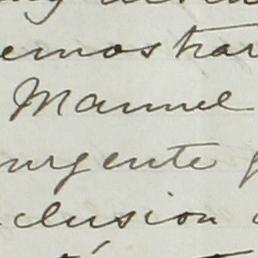 emostrar
Manuel
urgente
clusion